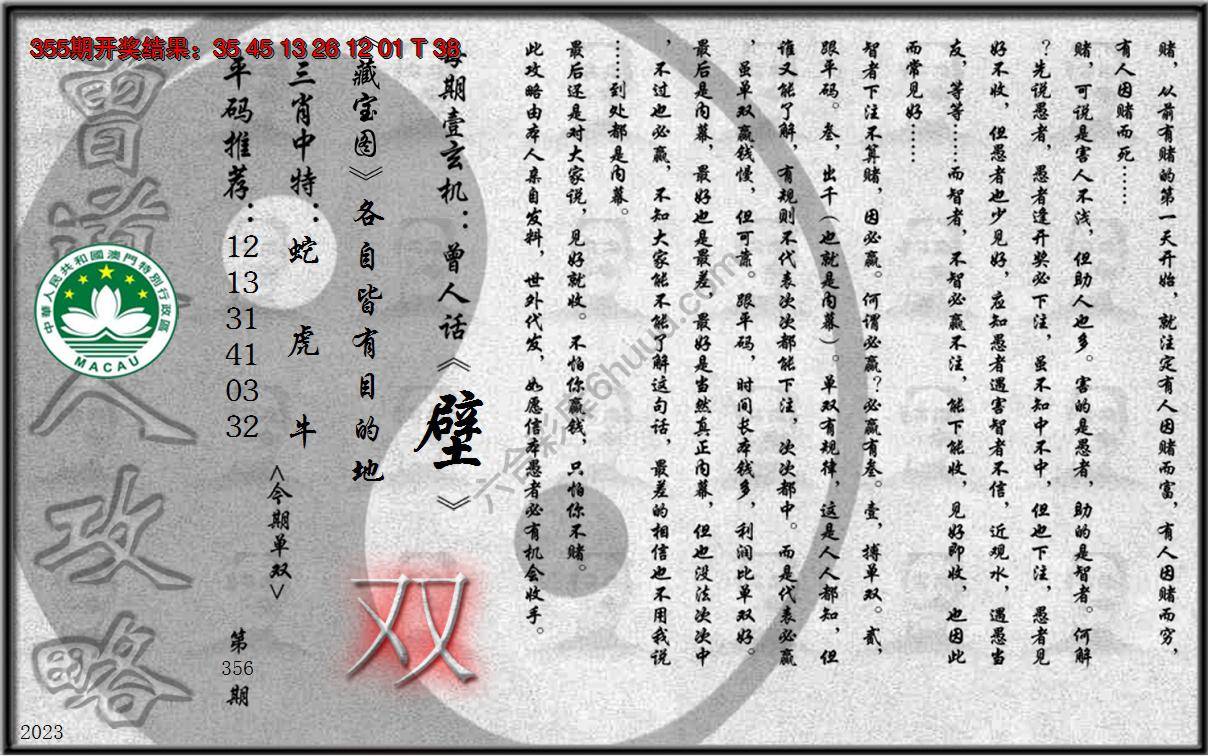 355期开奖结果：35 45 13 26 12 01 T 38
赌，从前有赌的第一天开始，就注定有人因赌而富，有人因赌而穷，
有人因赌而死……
赌，可说是害人不浅，但助人也多。害的是愚者，助的是智者。何解
？先说愚者，愚者逢开奖必下注，虽不知中不中，但也下注，愚者见
好不收，但愚者也少见好，应知愚者遇害智者不信，近观水，遇愚当
友，等等……而智者，不智必赢不注，能下能收，见好即收，也因此
而常见好……
智者下注不算赌，因必赢。何谓必赢？必赢有叁。壹，搏单双。贰，
跟平码。叁，出千（也就是内幕）。单双有规律，这是人人都知，但
谁又能了解，有规则不代表次次都能下注，次次都中。而是代表必赢
，虽单双赢钱慢，但可靠。跟平码，时间长本钱多，利润比单双好。
最后是内幕，最好也是最差，最好是当然真正内幕，但也没法次次中
，不过也必赢，不知大家能不能了解这句话，最差的相信也不用我说
……到处都是内幕。
最后还是对大家说，见好就收。不怕你赢钱，只怕你不赌。
此攻略由本人亲自发料，世外代发，如愿信本愚者必有机会收手。
每期壹玄机：曾人话《壁》
《藏宝图》各自皆有目的地
双
三肖中特：蛇 虎 牛
<今期单双>
平码推荐：12 13 31 41 03 32
第356期
曾道人攻略
中華人民共和國澳門特別行政區
MACAU
2023